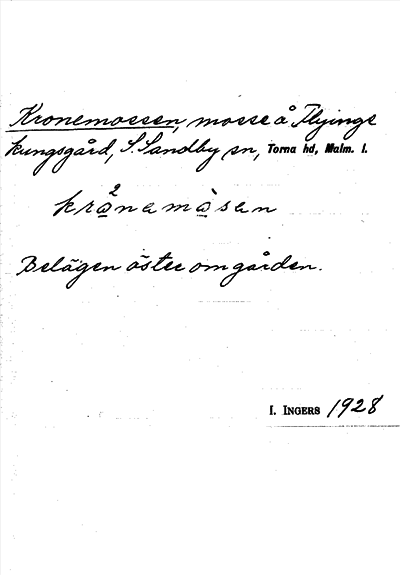 Kronemossen, mosse å Flyinge
kungsgård, S. Sandby sn, Torna hd, Malm. l.
krånemåsen
Belägen öster om gården.
I. INGERS 1928